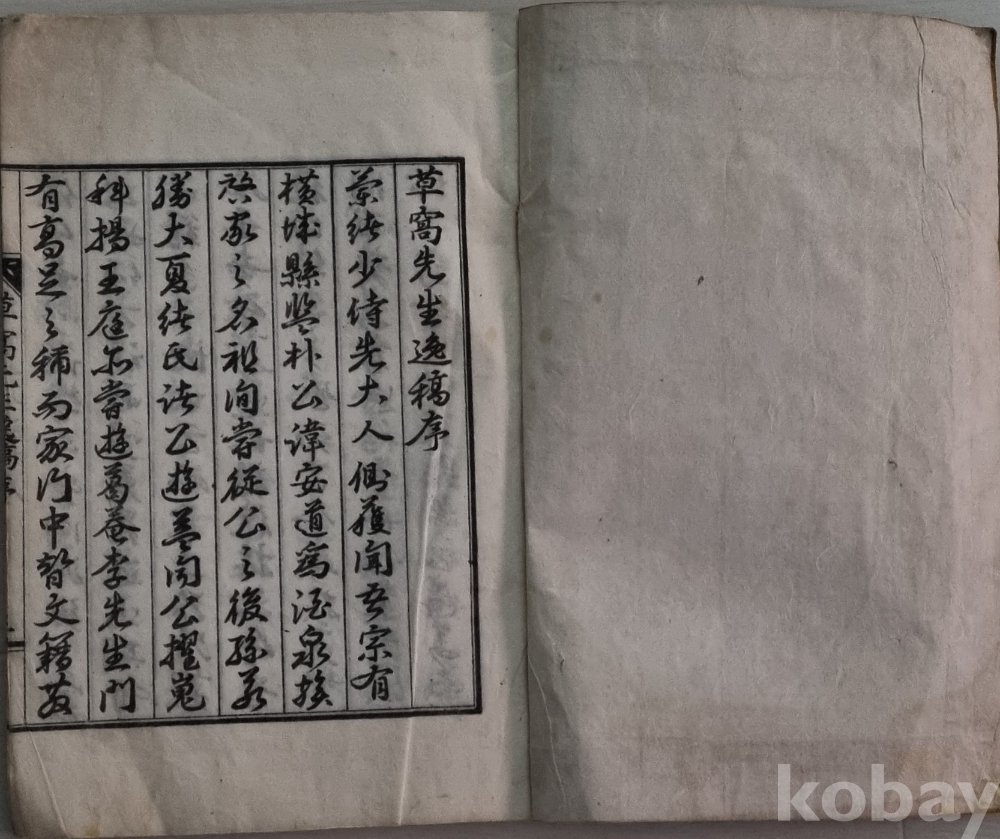 草窩先生逸稿序
蘭緒少侍先大人側獲聞吾宗有
橫城縣監朴公諱安道爲酒泉族
啓家之名祖洵嘗從公之後孫
勝大夏緒氏諸公遊盖聞公擢嵬
科揚王庭嘗遊葛菴李先生門
有高足之稱而家門中督文籍
草窩先生逸稿序
kobay